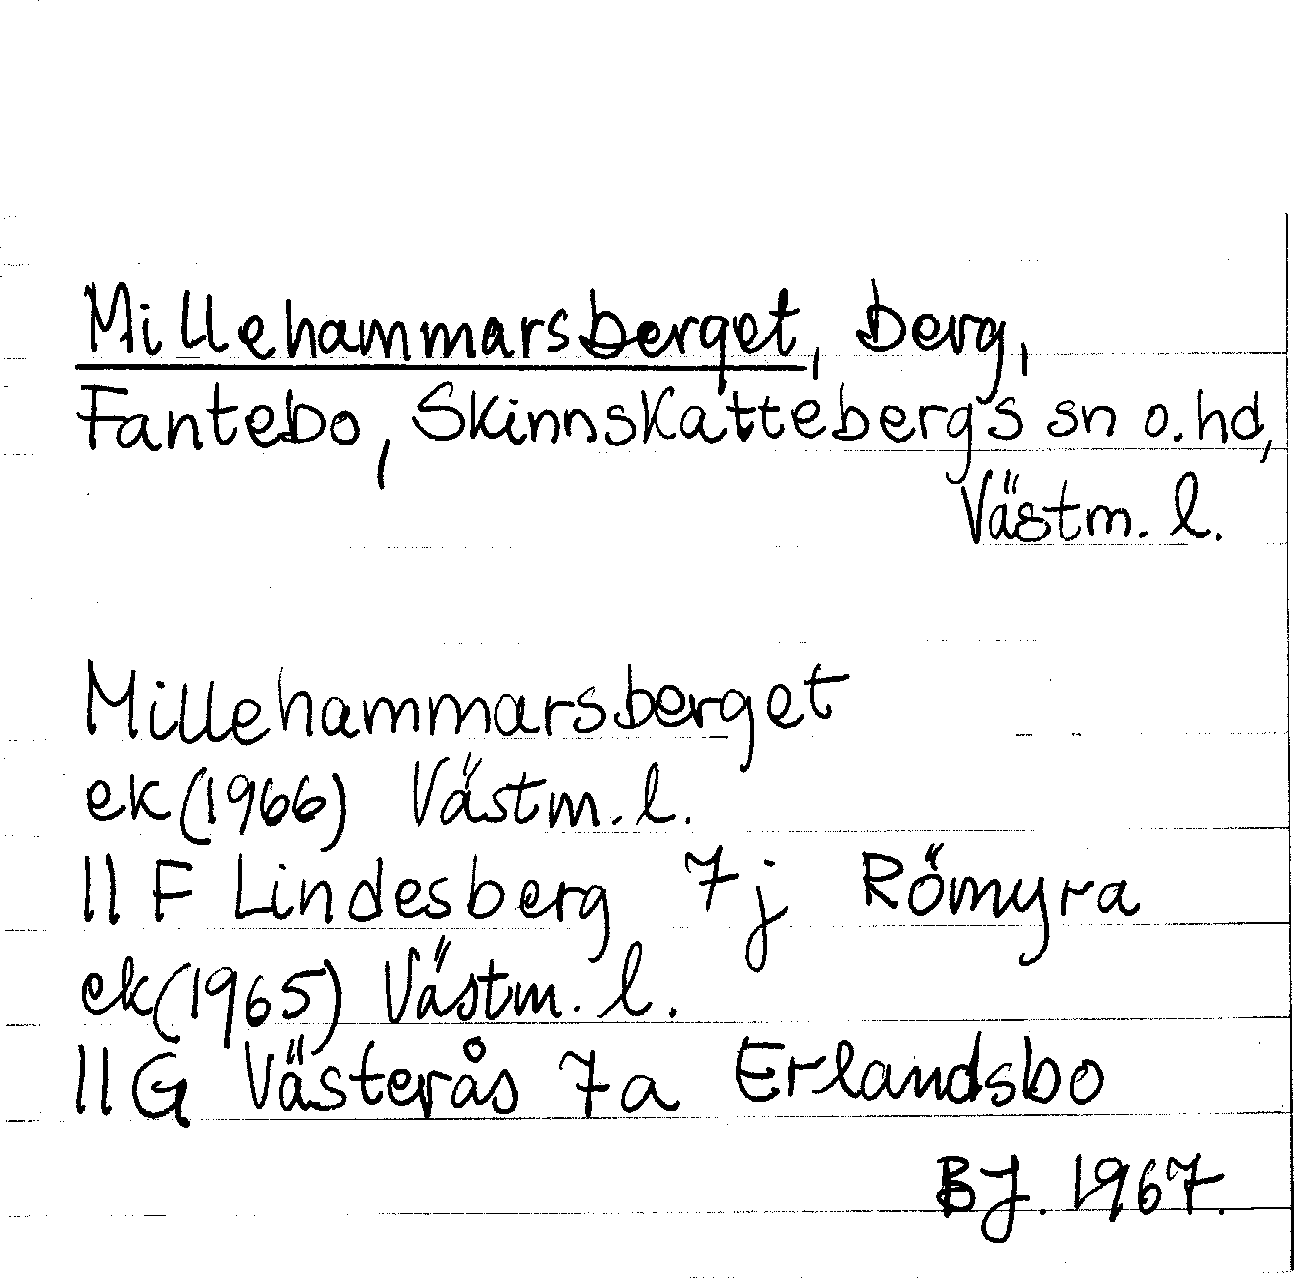 Millehammarsberget, berg,
Fantebo, Skinnskattebergs sn o. hd,
Västm. l.
Millehammarsberget
ek (1966) Västm. l.
11 F Lindesberg 7 j Römyra
ek (1965) Västm. l.
11 G Västerås 7 a Erlandsbo
BJ. 1967.